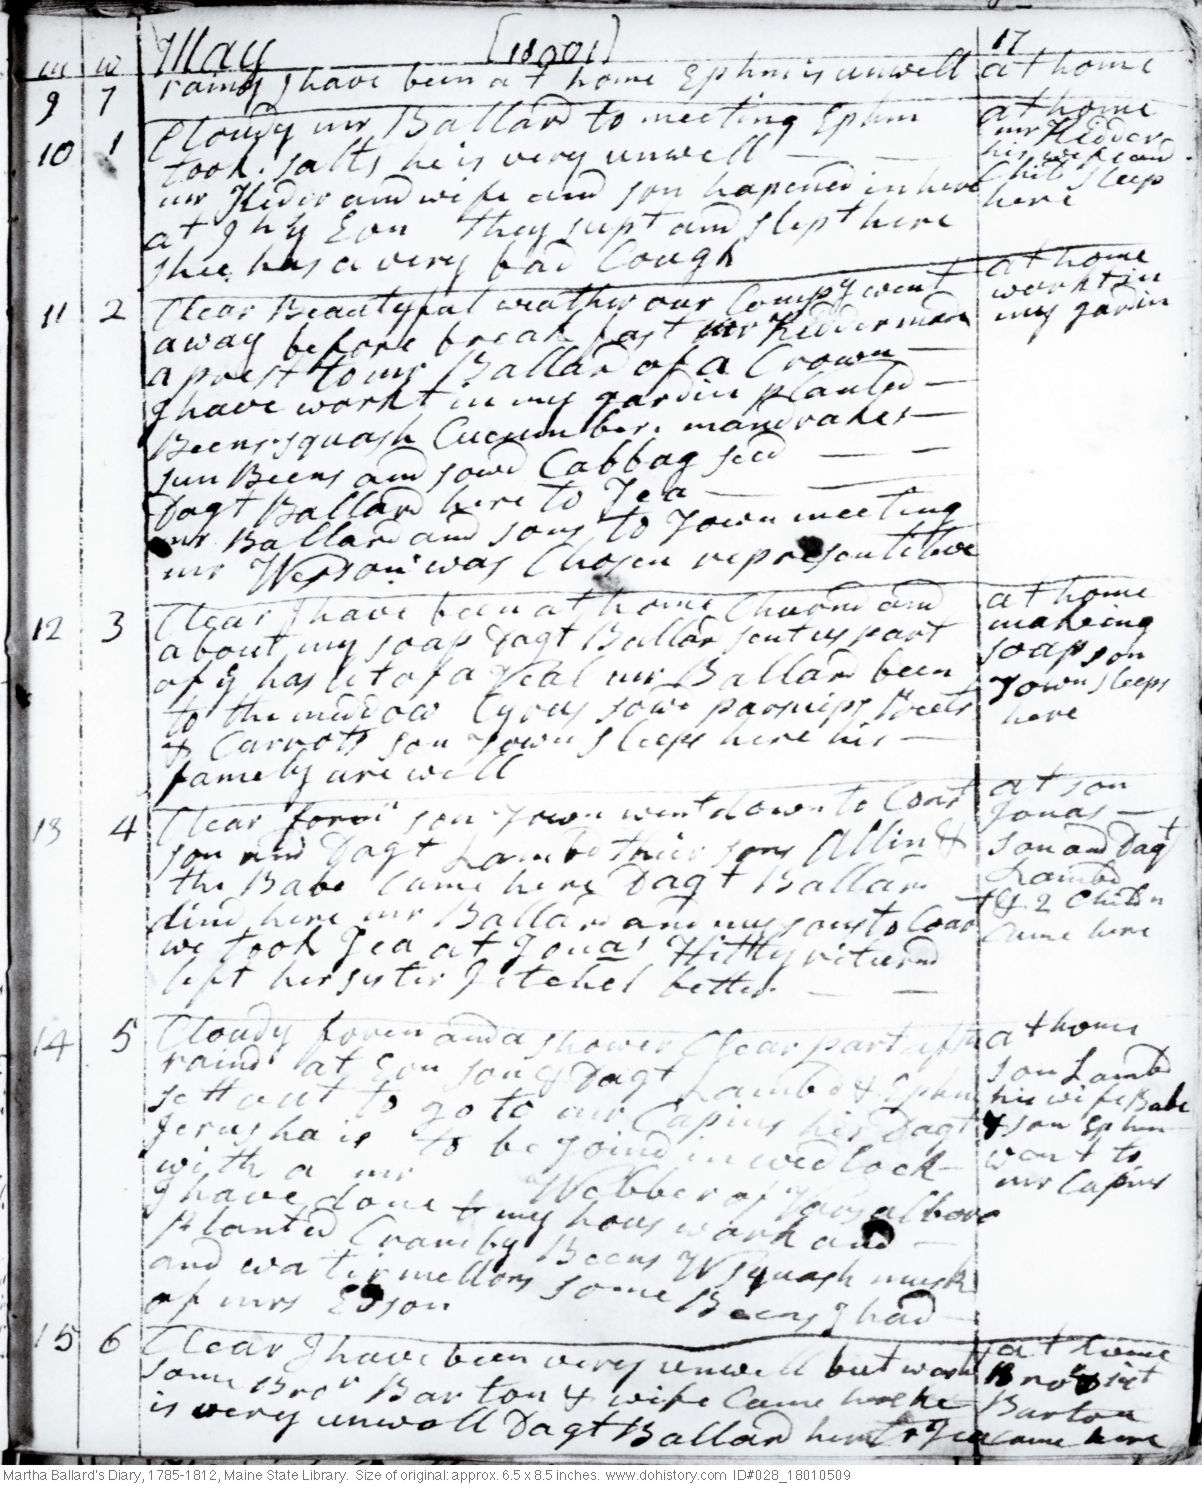 m w May [1801] 17
9 7 rainy I have been at home Ephm is unwell at home
10 1 Cloudy mr Ballard to meeting Ephm at home
took. salts he is very unwell — — mr Kidder
mr Kidir and wife and son hapened in here his wife and Child sleep
at Thy Eon they supt and slept here here
shee has a very bad Cough
11 2 Clear Beautyful weather our Compy went at home
away before break fast mr Kidder made workt in
a prest to mr Ballard of a Crown — my gardin
I have workt in my gardin planted —
Beens squash Cucumber. mandrakes —
sun Beens and sowd Cabbag seed — —
Dagt Ballard here to Tea — —
mr Ballard and sons to Town meeting
mr Wesson was Chosen representitive
12 3 Clear I have been at home Churnd and at home
about my soap Dagt Ballard sent us part makeing
of y has let of a Veal mr Ballard been soap son
to the meddow Cyrus sowd parsnips Beets Town sleeps
& Carrots son Town sleeps here his — here
famely are well
13 4 Clear foren son Town went down to Coart at son
son and Dagt Lambd thier sons Allin & Jonas —
the Babe Came here Dagt Ballard son and Dagt
dind here mr Ballard and my sons to Coart Lambd
we took Tea at Jonas' Hitty returnd & 2 Childn
left her sister Getchel better. — — Came here
14 5 Cloudy foren and a shower Clear part aftn at home
raind at Eon son & Dagt Lambd & Ephm son Lambd
sett out to go to mr Capins his Dagt his wife Babe
Jerusha is to be joind in wedlock — & son Ephm
with a mr Webber of Vassalboro went to
I have done my hous work and — mr Capins
planted Cramby Beens W squash musk
and watir mellons some Beens I had —
of mrs Esson
15 6 Clear I have been very unwell but washt at home
some Bror Barton & wife Came here he Bror
is very unwell Dagt Ballard here to Tea Barton
Came here
Martha Ballard's Diary, 1785-1812, Maine State Library. Size of original: approx. 6.5 x 8.5 inches. www.dohistory.com ID#028_18010509